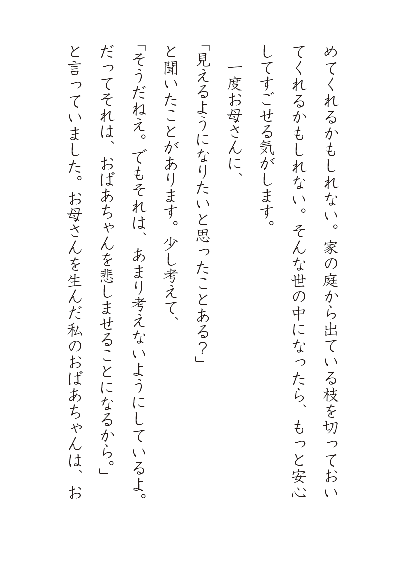 めてくれるかもしれない。家の庭から出ている枝を切っておい
てくれるかもしれない。そんな世の中になったら、もっと安心
してすごせる気がします。
一度お母さんに、
「見えるようになりたいと思ったことある？」
と聞いたことがあります。少し考えて、
「そうだねえ。でもそれは、あまり考えないようにしているよ。
だってそれは、おばあちゃんを悲しませることになるから。」
と言っていました。お母さんを生んだ私のおばあちゃんは、お